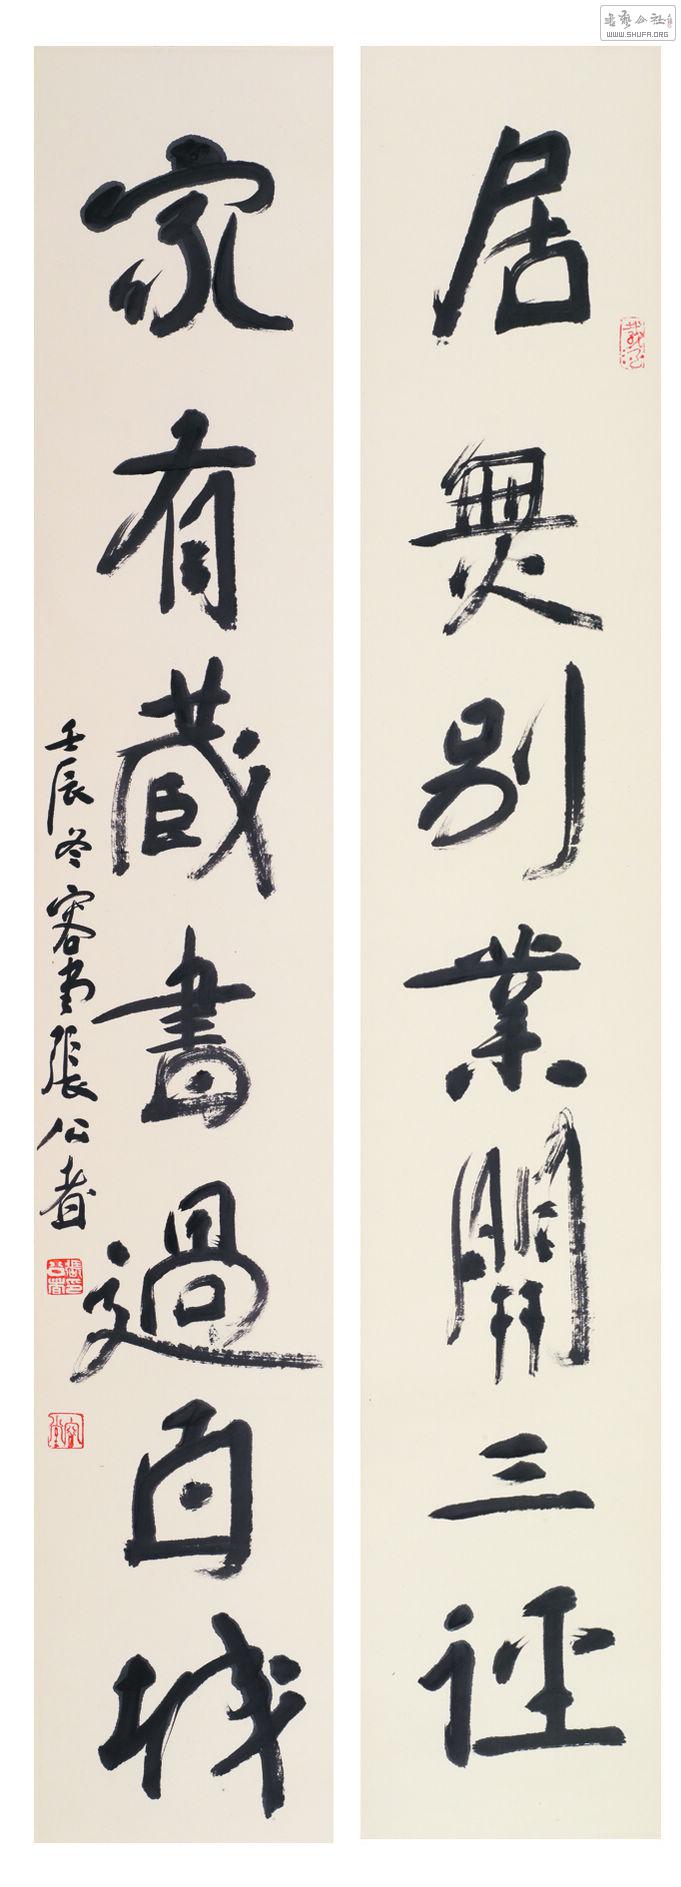 書藝公社
WWW.SHUFA.ORG
居無別業開三徑
家有藏書過百城
壬辰冬容堂張公者